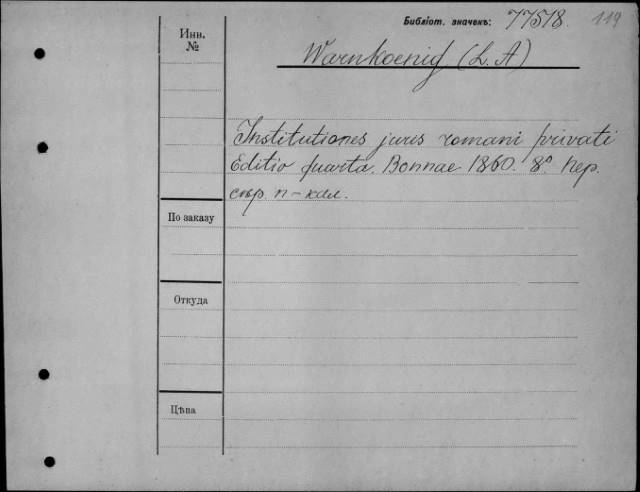 Библіот. значекъ: 77518. 119
Инв.
№
Warnkoenig (L. A)
Institutiones juris romani privati
Editio quarta. Bonnae 1860. 8°. пер.
сѣр. п-кал.
По заказу
Откуда
Цѣна